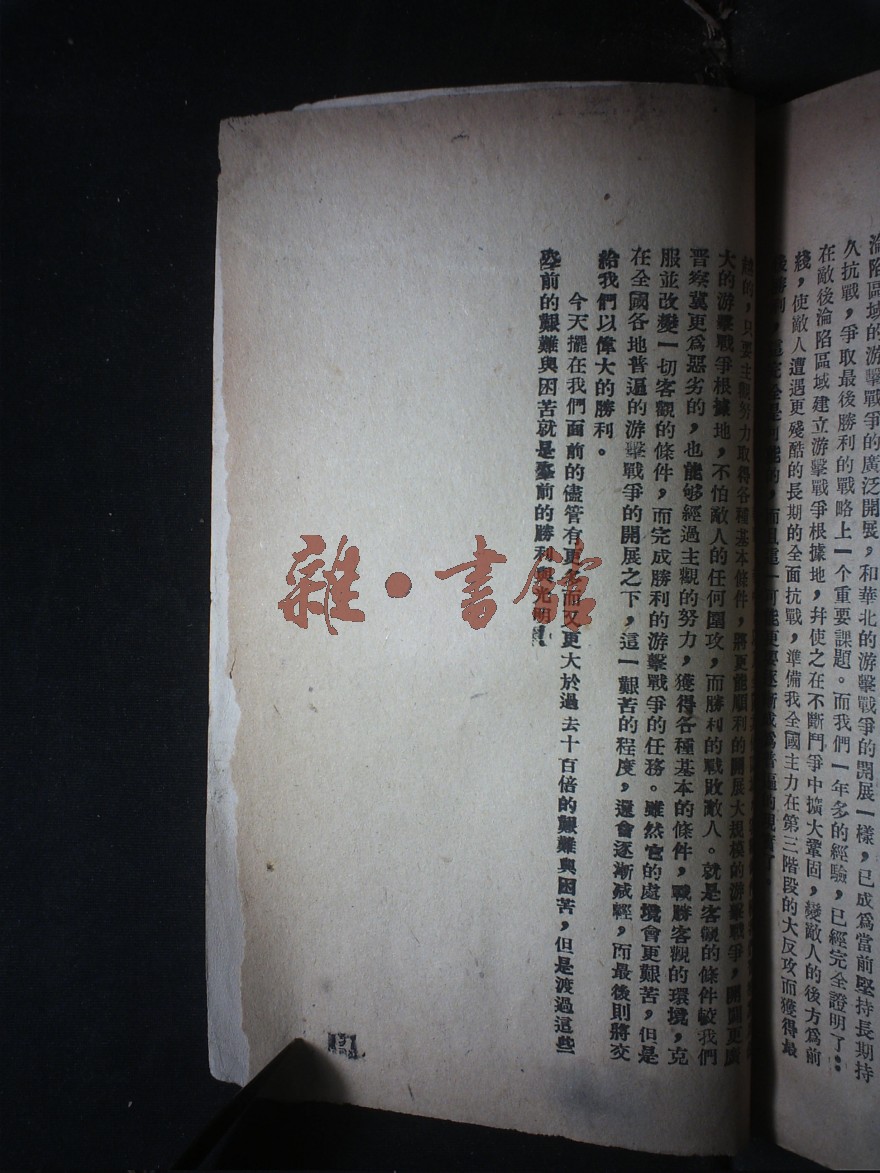 淪陷區域的游擊戰爭的廣泛開展，和華北的游擊戰爭的開展一樣，已成爲當前堅持長期持
久抗戰，爭取最後勝利的戰略上一个重要課題。而我們一年多的經驗，已經完全證明了：
在敵後淪陷區域建立游擊戰爭根據地，幷使之在不斷鬥爭中擴大鞏固，變敵人的後方爲前
綫，使敵人遭遇更殘酷的長期的全面抗戰，準備我全國主力在第三階段的大反攻而獲得最
的，只要主觀努力取得各種基本條件，將更能順利的開展大規模的游擊戰爭，開闢更廣
大的游擊戰爭根據地，不怕敵人的任何圍攻，而勝利的戰敗敵人。就是客觀的條件較我們
晋察冀更爲惡劣的，也能够經過主觀的努力，獲得各種基本的條件，戰勝客觀的環境，克
服並改變一切客觀的條件，而完成勝利的游擊戰爭的任務。雖然它的處境會更艱苦，但是
在全國各地普遍的游擊戰爭的開展之下，這一艱苦的程度，還會逐漸减輕，而最後則將交
給我們以偉大的勝利。
今天擺在我們面前的儘管有更多而又更大於過去十百倍的艱難與困苦，但是渡過這些
前的艱難與困苦就是前的勝利與光明！
雜·書館